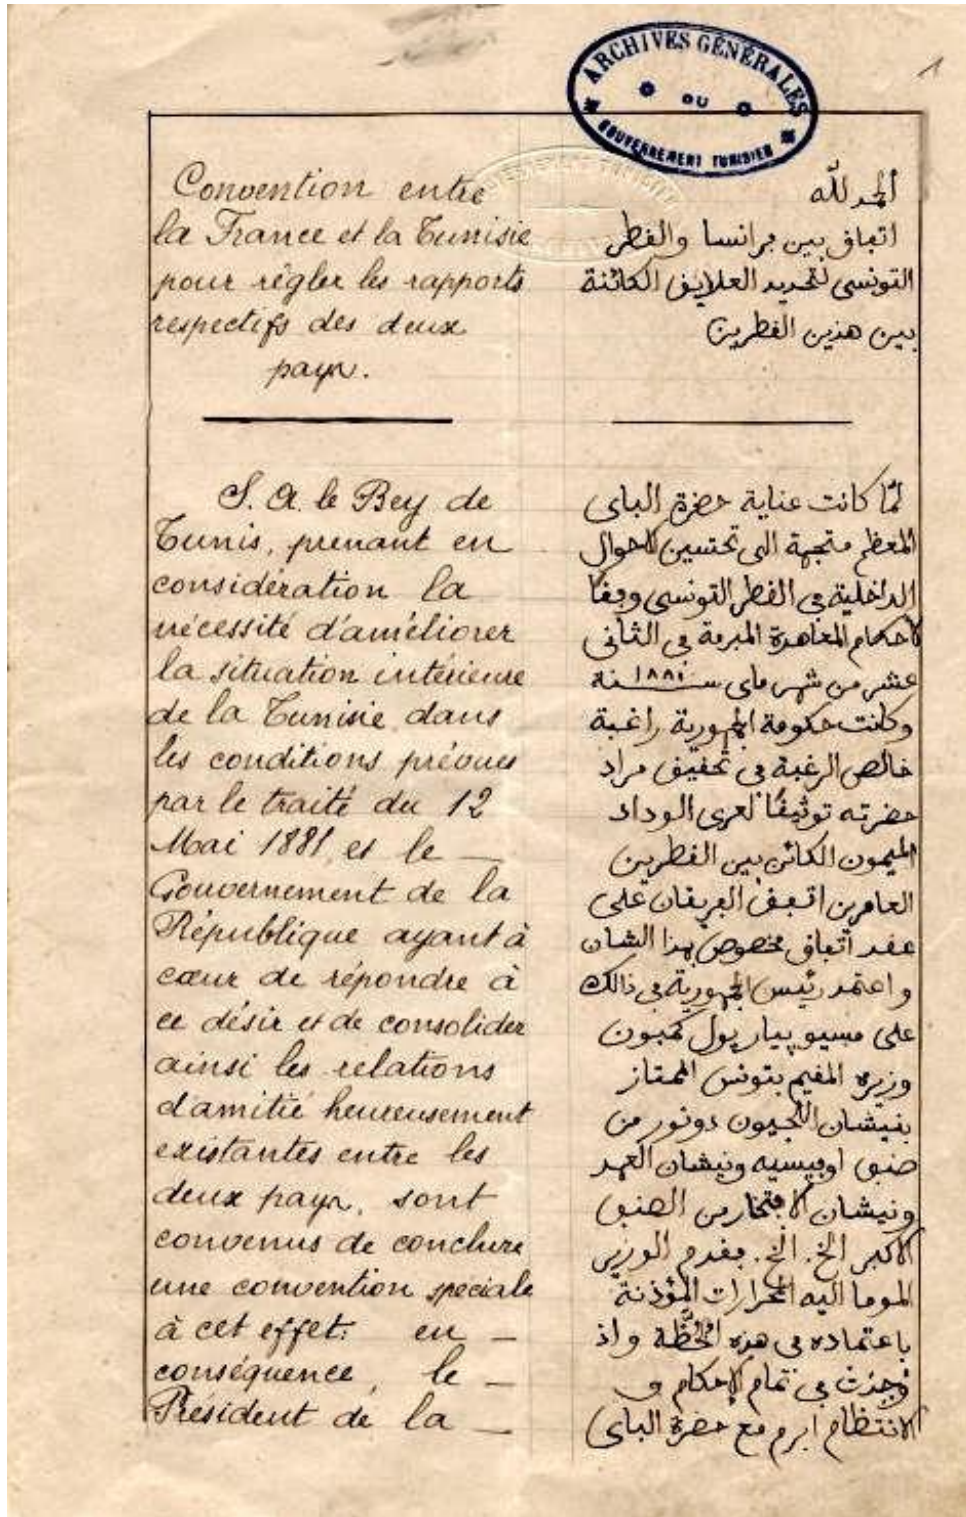 ARCHIVES GÉNÉRALES
DU
GOUVERNEMENT TUNISIEN
1
Convention entre
la France et la Tunisie
pour régler les rapports
respectifs des deux
pays.
S. A. le Bey de
Tunis, prenant en
considération la
nécessité d'améliorer
la situation intérieure
de la Tunisie dans
les conditions prévues
par le traité du 12
Mai 1881, et le
Gouvernement de la
République ayant à
cœur de répondre à
ce désir et de consolider
ainsi les relations
d'amitié heureusement
existantes entre les
deux pays, sont
convenus de conclure
une convention spéciale
à cet effet: en
conséquence, le
Président de la
الحمد لله
اتفاق بين فرانسا والقطر
التونسي لتحديد العلايق الكائنة
بين هذين القطرين
لمّا كانت عناية حضرة الباي
المعظم متجهة الى تحسين الاحوال
الداخلية في القطر التونسي وفقا
لأحكام المعاهدة المبرمة في الثاني
عشر من شهر ماي سنة ١٨٨١
وكانت حكومة الجمهورية راغبة
خالص الرغبة في تحقيق مراد
حضرته توثيقًا لعرى الوداد
الميمون الكائن بين القطرين
العامرين اتفق الفريقان على
عقد اتفاق مخصوص بهذا الشان
واعتمد رئيس الجمهورية في ذالك
على مسيو پيار پول كمبون
وزيره المقيم بتونس الممتاز
بنيشان اللجيون دونور من
صنف اوفيسيه ونيشان العهد
ونيشان الافتخار من الصنف
الاكبر الخ. الخ. فقدم الوزير
الموما اليه المحرارات المؤذنة
باعتماده في هذه الخطّة واذ
وُجدت في تمام الإحكام و
الانتظام ابرم مع حضرة الباي